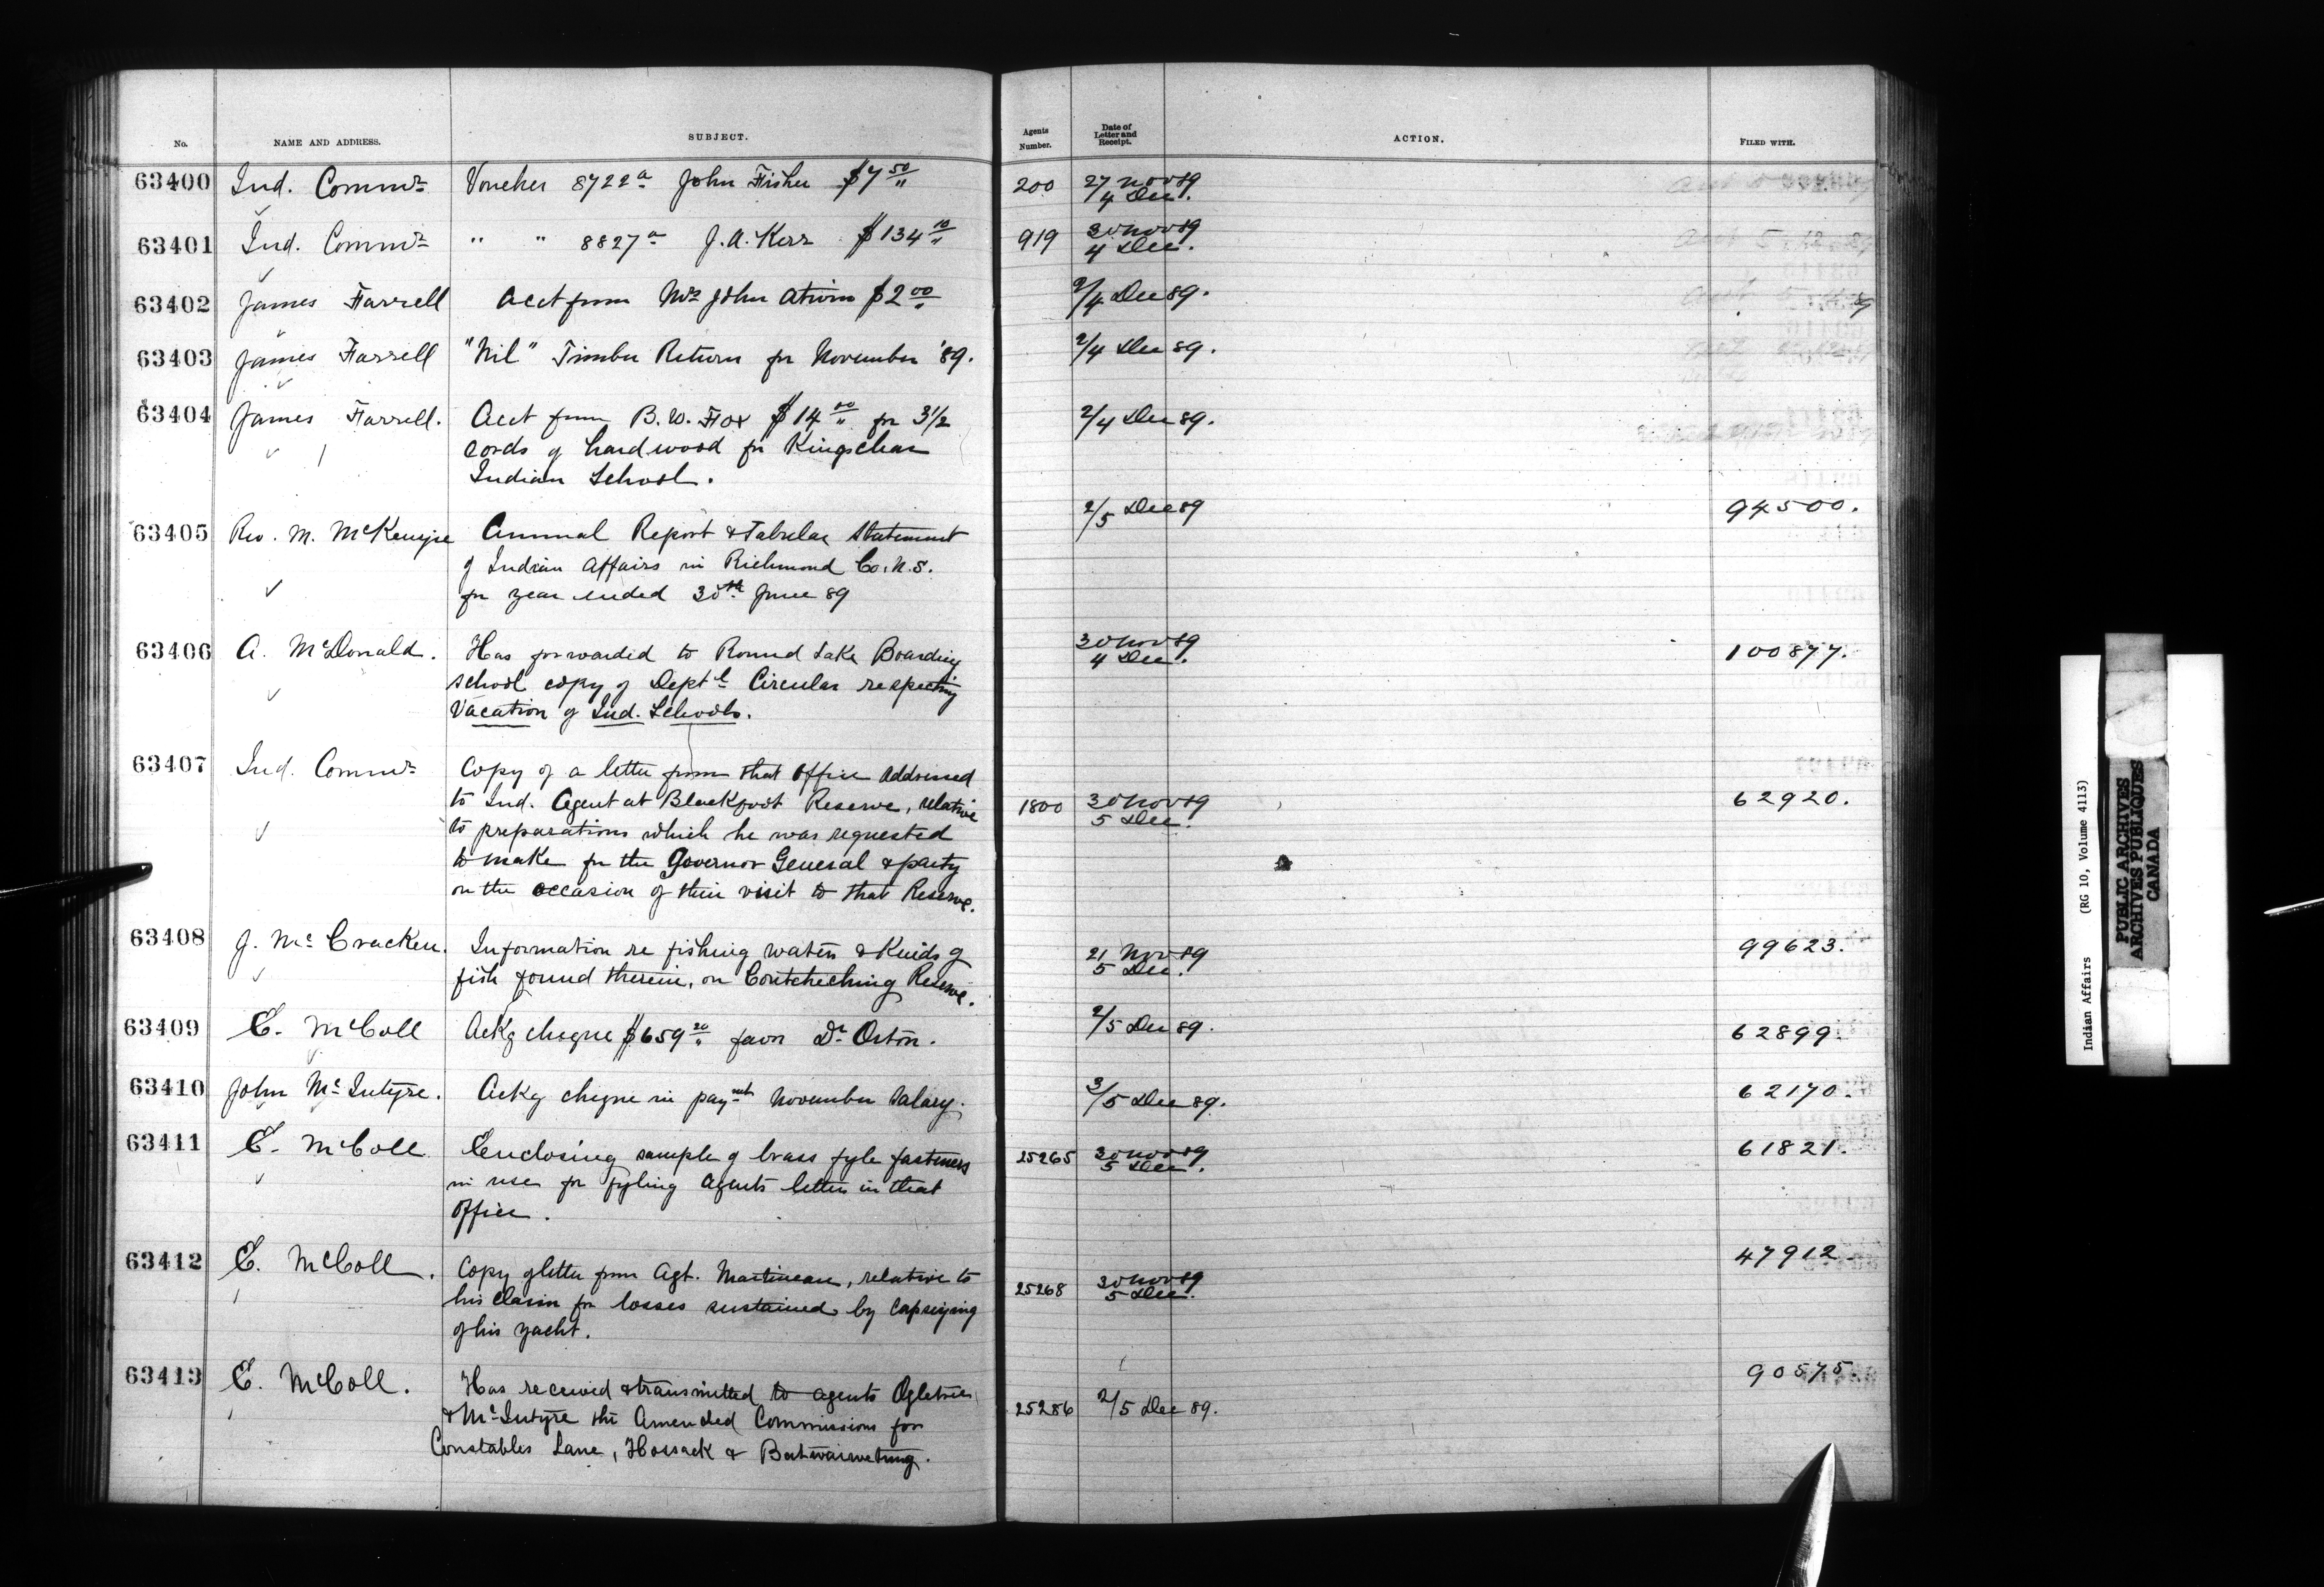 No. NAME AND ADDRESS. SUBJECT. Agents Number. Date of Letter and Receipt. ACTION. FILED WITH.
63400 Ind. Commr Voucher 8722a John Fisher $7 50/" 200 27 Nov 89
4 Dec.
63401 Ind. Commr " " 8827a J. A. Kerr $134 10/" 919 30 Nov 89
4 Dec.
63402 James Farrell Acct from Mrs John $2 00/" 2/4 Dec 89.
63403 James Farrell "Nil" Timber Return for November '89. 2/4 Dec 89.
63404 James Farrell. Acct from B. W. Fox $14 00/" for 3 1/2 2/4 Dec 89.
cords of hardwood for Kingsclear
Indian School.
63405 Rev. M. McKenzie Annual Report & Tabular Statement 2/5 Dec 89 94500.
of Indian Affairs in Richmond Co. N.S.
for year ended 30th June 89
63406 A. McDonald. Has forwarded to Round Lake Boarding 30 Nov 89 100877.
4 Dec.
School copy of Deptl Circular respecting
Vacation of Ind. Schools.
63407 Ind. Commr Copy of a letter from that Office addressed
to Ind. Agent at Blackfoot Reserve, relative 1800 30 Nov 89 62920.
5 Dec.
to preparations which he was requested
to make for the Governor General & party
on the occasion of their visit to that Reserve.
63408 J. McCracken. Information re fishing waters & kinds of 21 Nov 89 99623.
5 Dec.
fish found therein, on Coutcheching Reserve.
63409 E. McColl Ackg cheque $659 20/" favor Dr Orton. 2/5 Dec 89. 62899.
63410 John McIntyre. Ackg cheque in paymt November Salary. 3/5 Dec 89. 62170.
63411 E. McColl Enclosing sample of brass fyle fasteners 25265 30 Nov 89 61821.
5 Dec.
in use for fyling Agents letters in that
Office.
63412 E. McColl. Copy of letter from Agt. Martineau, relative to 25268 30 Nov 89 47912.
5 Dec.
his claim for losses sustained by capsizing
of his yacht.
63413 E. McColl. Has received & transmitted to agents Ogletree 25286 2/5 Dec 89. 90575.
& McIntyre the Amended Commissions for
Constables Lane, Hossack &
Indian Affairs (RG 10, Volume 4113)
PUBLIC ARCHIVES
ARCHIVES PUBLIQUES
CANADA